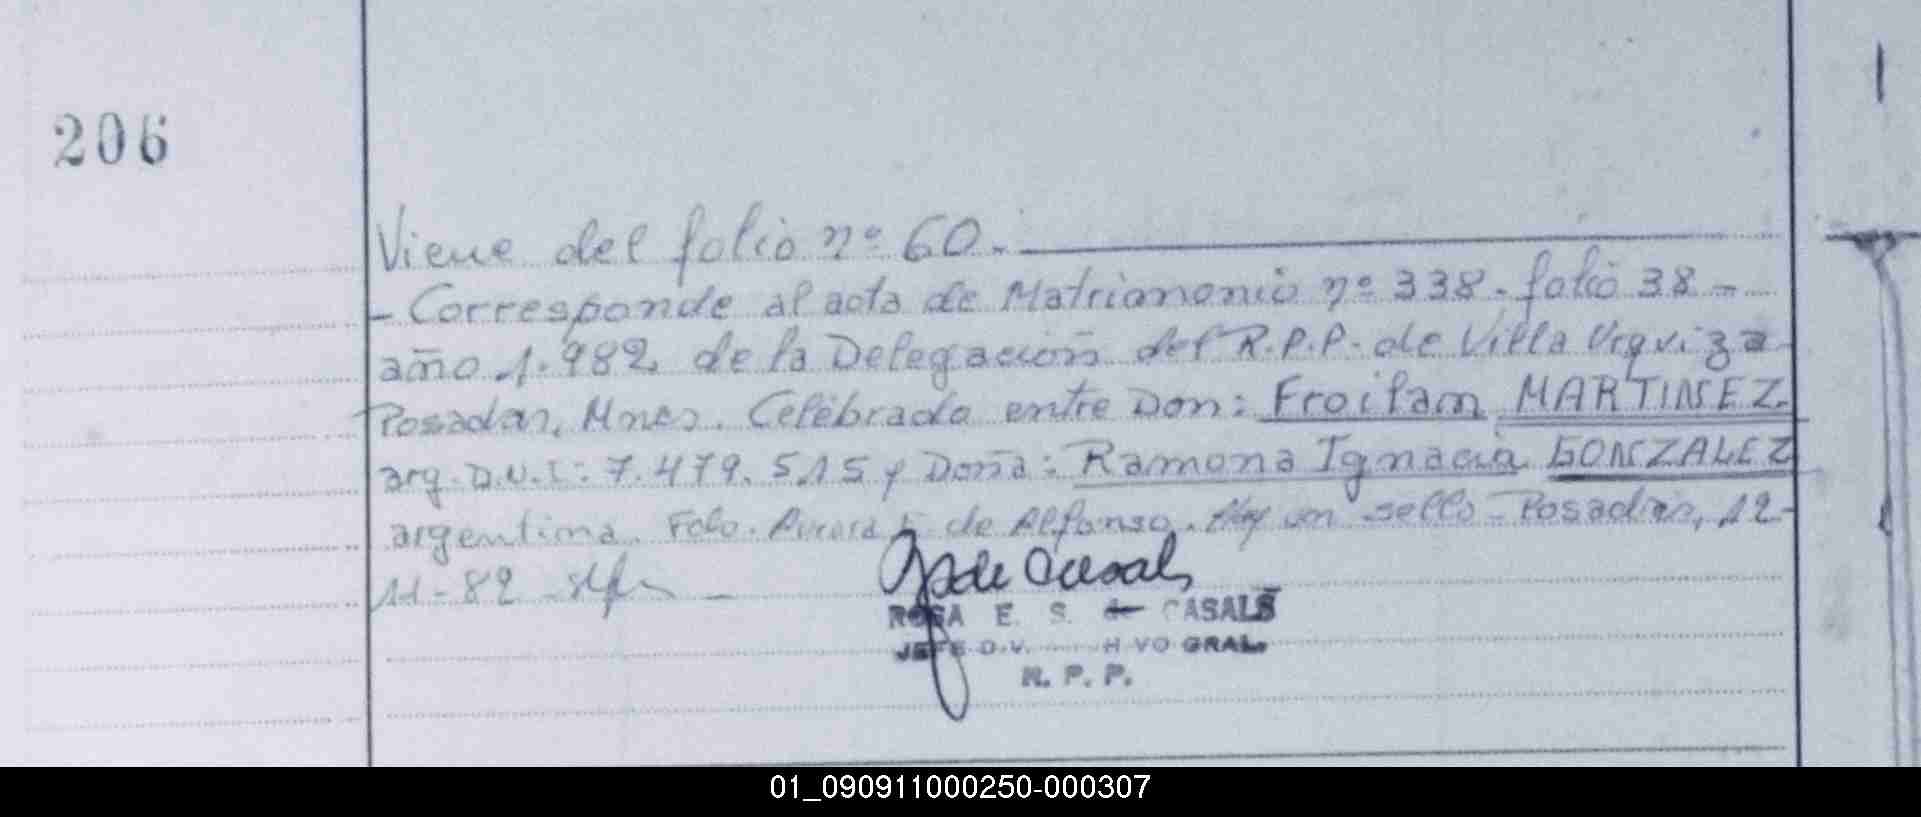 206
Viene del folio nº 60.-
- Corresponde al acta de Matrimonio nº 338 - folio 38 -
año 1.982 de la Delegación del R.P.P. de Villa Urquiza
Posadas, Mnes. Celebrado entre Don: Froilam MARTINEZ.
arg. D.N.I: 7.479.515 y Doña: Ramona Ignacia GONZALEZ
argentina. Fdo. de Alfonso. Hay un sello - Posadas, 12-
11-82 -
de Casals
ROSA E. S. de CASALS
JEFE GRAL.
R. P. P.
01_090911000250-000307